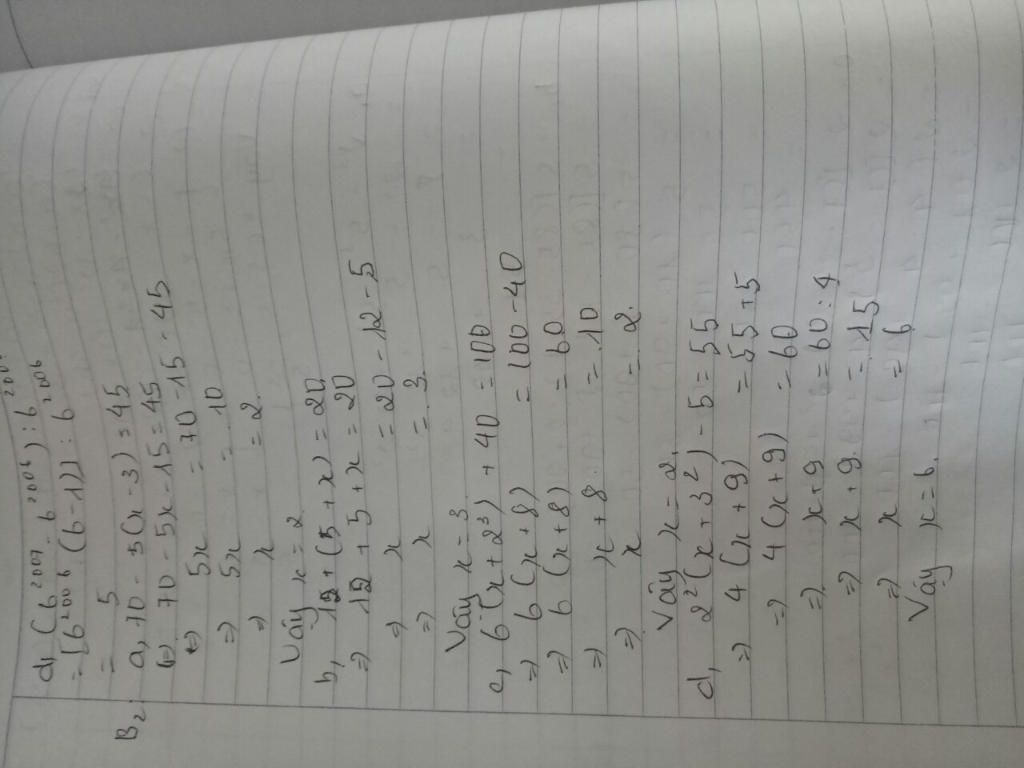 d, (6²⁰⁰⁷ - 6²⁰⁰⁶) : 6²⁰⁰⁶
= [6²⁰⁰⁶ . (6-1)] : 6²⁰⁰⁶
= 5
B2: a, 70 - 5(x-3) = 45
70 - 5x - 15 = 45
5x = 70 - 15 - 45
=> 5x = 10
=> x = 2
Vậy x = 2
b, 12 + (5 + x) = 20
=> 12 + 5 + x = 20
=> x = 20 - 12 - 5
=> x = 3
Vậy x = 3
c, 6(x + 2³) + 40 = 100
=> 6(x + 8) = 100 - 40
=> 6(x + 8) = 60
=> x + 8 = 10
=> x = 2
Vậy x = 2
d, 2²(x + 3²) - 5 = 55
=> 4(x + 9) = 55 + 5
=> 4(x + 9) = 60
=> x + 9 = 60 : 4
=> x + 9 = 15
=> x = 6
Vậy x = 6